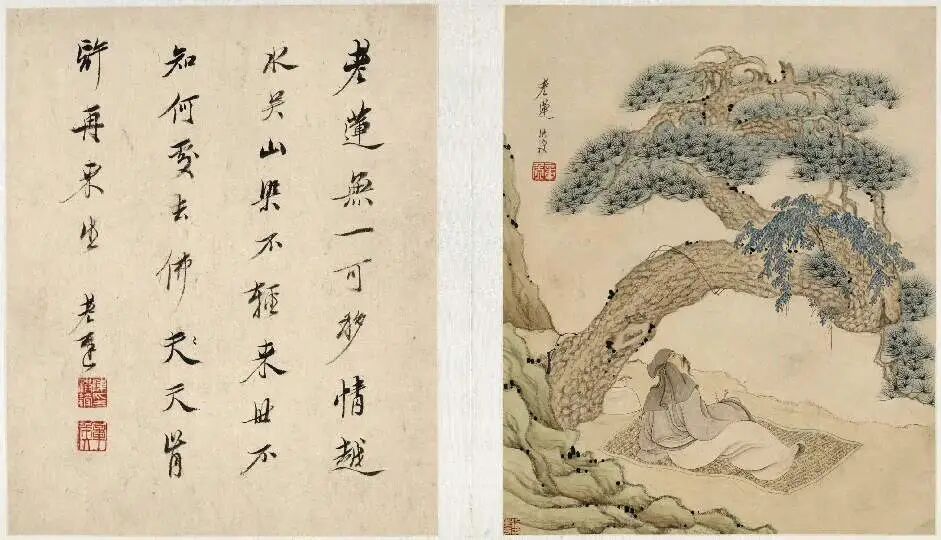 老蓮無一可移情越
水吳山染不輕来世不
知何處去佛天肯
許再来生 老蓮
老蓮 洪綬